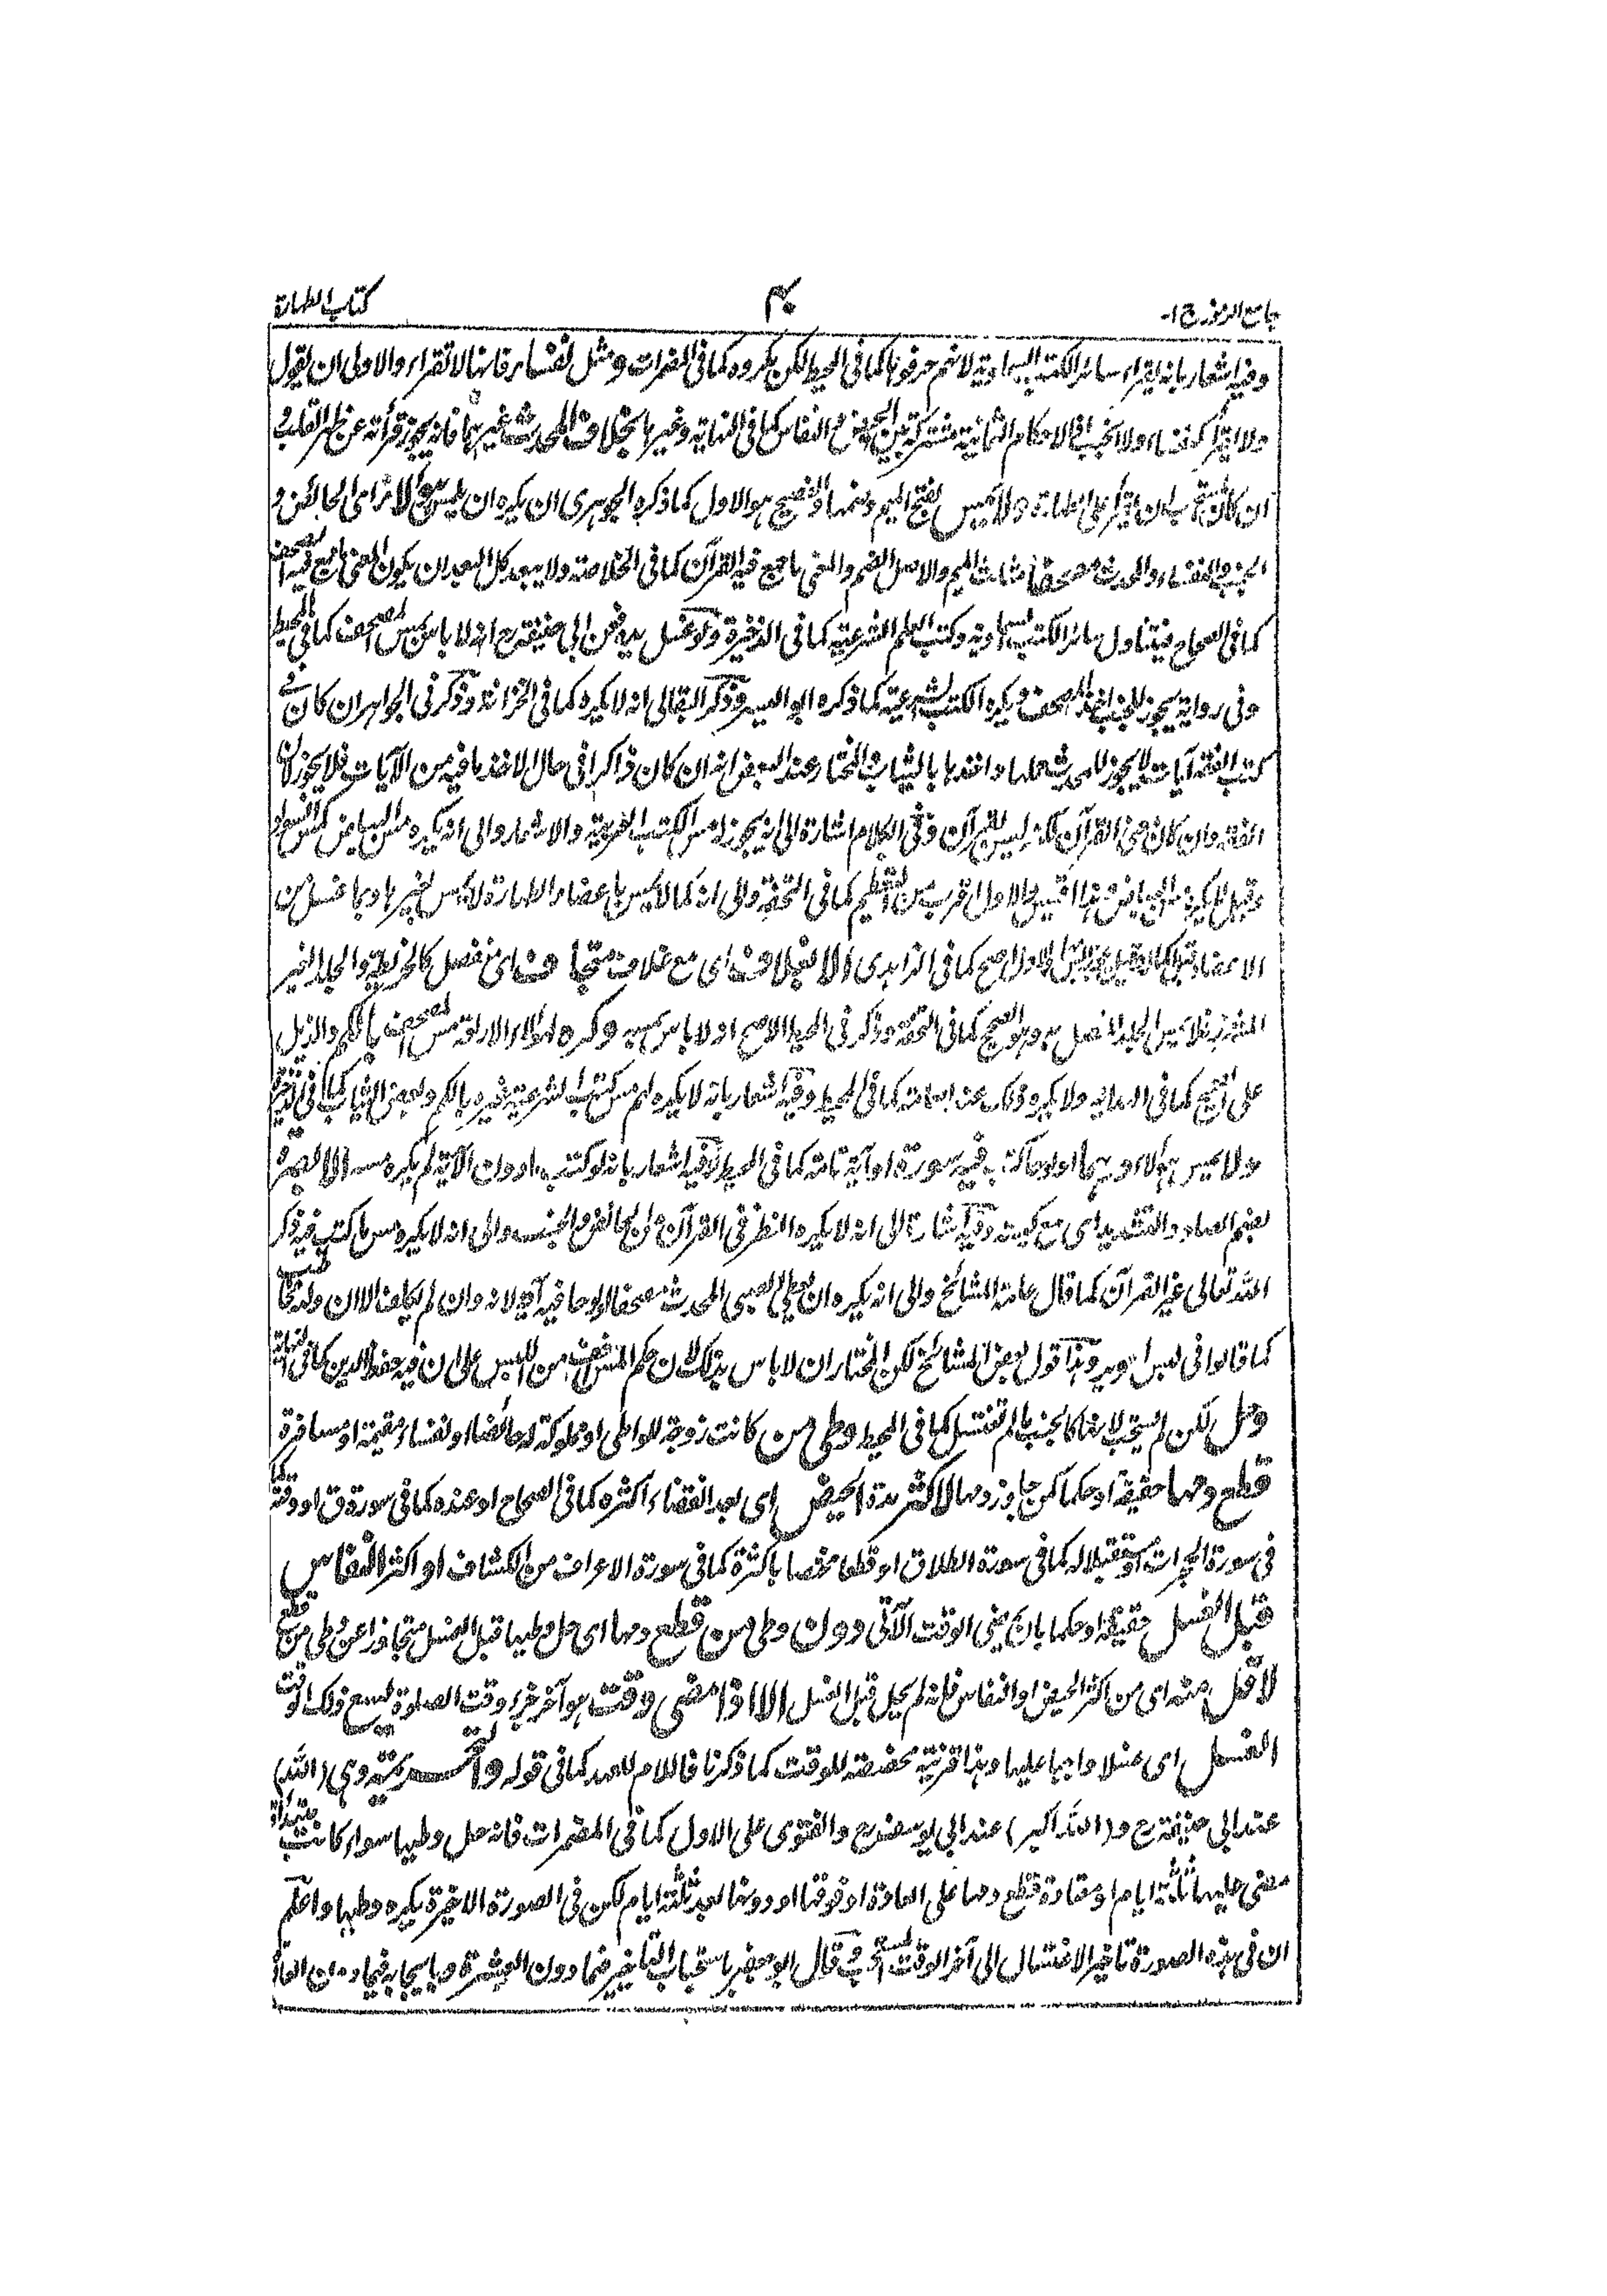 جامع الرموز ج ۱- ۴۰ كتاب الطهارة
وفيه اشعار بانه يقراء سائر الكتب السماوية لانهم حرفوها كما فى المحيط لكن يكره كما فى المضمرات ومثل نفساء فانها لا تقراء والاولى ان يقول
ولا يقرأ كنفساء ولا الجنب فالاحكام الثمانية مشتركة بين الحيض والنفاس كما فى النهاية وغيرها بخلاف المحدث غيرهما فانه يجوز قرأته عن ظهر القلب و
ان كان المستحب ان يقرأ على الطهارة ولا يمس بفتح الميم وضمها والفصيح هو الاول كما ذكره الجوهرى اى يكره ان يلمس هؤلاء اى الحائض و
الجنب والنفساء والمحدث مصحفا مثلث الميم والاصل الضم والمعنى ما جمع فيه القرآن كما فى الخلاصة ولا يبعد كل البعد ان يكون المعنى ما جمع فيه الصحف
كما فى الصحاح فيتناول سائر الكتب السماوية وكتب العلم الشرعية كما فى الذخيرة ولو غسل يده فعن ابى حنيفة رح انه لا باس بمس المصحف كما فى المحيط
وفى رواية يجوز للجنب اخذ المصحف ويكره الكتب الشرعية كما ذكره ابو اليسر وذكر البقالى انه لا يكره كما فى الخزانة وذكر فى الجواهر ان كان فى
كتب الفقه آيات لا يجوز للمحدث حملها واخذها بالثياب والمختار عند البعض انه ان كان ذاكرا فى حال الاخذ ما فيه من الآيات فلا يجوز لان
الفقه وان كان معنى القرآن لكنه ليس بقرآن وفى الكلام اشارة الى انه يجوز مس الكتب الغريبة والاشعار والى انه يكره مس البياض كمس السواد
وقيل لا يكره مس البياض وهذا اقيس والاول اقرب من التعظيم كما فى التحفة والى انه كما لا يمس باعضاء الطهارة لا يمس بغيرها وبما غسل من
الاعضاء قبل الاكمال والاول اصح كما فى الزاهدى الا بغلاف اى مع غلاف متجاف اى منفصل كالخريطة والجلد الغير
المشرز فلا يمس الجلد المتصل به وهو الصحيح كما فى التحفة وذكر فى المحيط الاصح انه لا باس بمسه وكره لهؤلاء الاربعة مس المصحف بالكم والذيل
على الصحيح كما فى الهداية ولا يكره ذلك عند العامة كما فى المحيط وفيه اشعار بانه لا يكره لهم مس كتب الشرعية غيره بالكم وبعض الثياب كما فى الذخيرة
ولا يمس هؤلاء درهما او لوحا كتب فيه سورة او آية تامة كما فى المحيط وفيه اشعار بانه لو كتب ما دون الآية لم يكره مسه الا بصرة
بضم الصاد والتشديد اى مع كيسة وفيه اشارة الى انه لا يكره النظر فى القرآن من الحائض والجنب والى انه لا يكره مس ما كتب فيه ذكر
الله تعالى غير القرآن كما قال عامة المشائخ والى انه يكره ان يعطى الصبى المحدث مصحفا او لوحا فيه آية لانه وان لم يكلف الا ان وليه مخاطب
كما قالوا فى لبس الحرير وهذا قول بعض المشائخ لكن المختار ان لا باس بذلك لان حكم المس اخف من اللبس على ان فيه حفظ الدين كما فى النهاية
وحل لكن لم يستحب لانها كالجنب ما لم تغتسل كما فى المحيط وطى من كانت زوجة للواطى او مملوكة له حائضا او نفساء مقيمة او مسافرة
قطع دمها حقيقة او حكما كمن جاوز دمها لاكثر مدة الحيض اى بعد انقضاء اكثره كما فى الصحاح او عنده كما فى سورة ق او وقته كما
فى سورة الحجرات او مستقبلا له كما فى سورة الطلاق او قطعا مختصا باكثره كما فى سورة الاعراف من الكشاف او اكثر النفاس
قبل الغسل حقيقة او حكما بان يمضى الوقت الآتى دون وطى من قطع دمها اى حل وطيها قبل الغسل متجاوزا عن وطى من قطع
لاقل منه اى من اكثر الحيض او النفاس فانه لم يحل قبل الغسل الا اذا مضى وقت هو آخر جزء وقت الصلوة يسع ذلك الوقت
الغسل اى غسلا واجبا عليها وهذا قرينة مخصصة للوقت كما ذكرنا فاللام للعهد كما فى قوله والتحريمة وهى (الله)
عند ابى حنيفة رح و (الله اكبر) عند ابى يوسف رح والفتوى على الاول كما فى المضمرات فانه حل وطيها سواء كانت مبتدأة
مضى عليها ثلثة ايام او معتادة قطع دمها على العادة او فوقها او دونها بعد ثلثة ايام لكن فى الصورة الاخيرة يكره وطيها واعلم
ان فى هذه الصورة تاخير الاغتسال الى آخر الوقت المستحب قال ابو جعفر باستحباب التاخير فيما دون العشرة وبايجابه فيما دون العادة